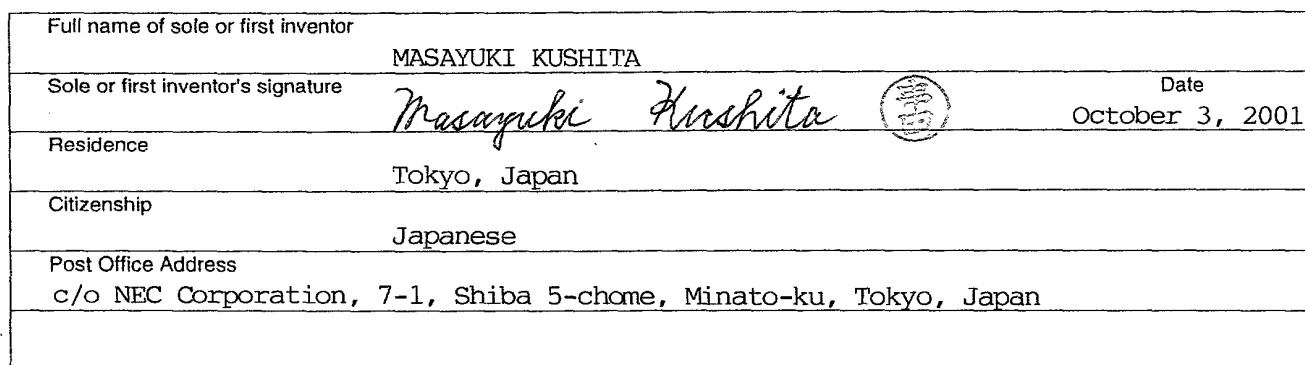 Full name of sole or first inventor
MASAYUKI KUSHITA
Sole or first inventor's signature
Masayuki Kushita
Date
October 3, 2001
Residence
Tokyo, Japan
Citizenship
Japanese
Post Office Address
c/o NEC Corporation, 7-1, Shiba 5-chome, Minato-ku, Tokyo, Japan